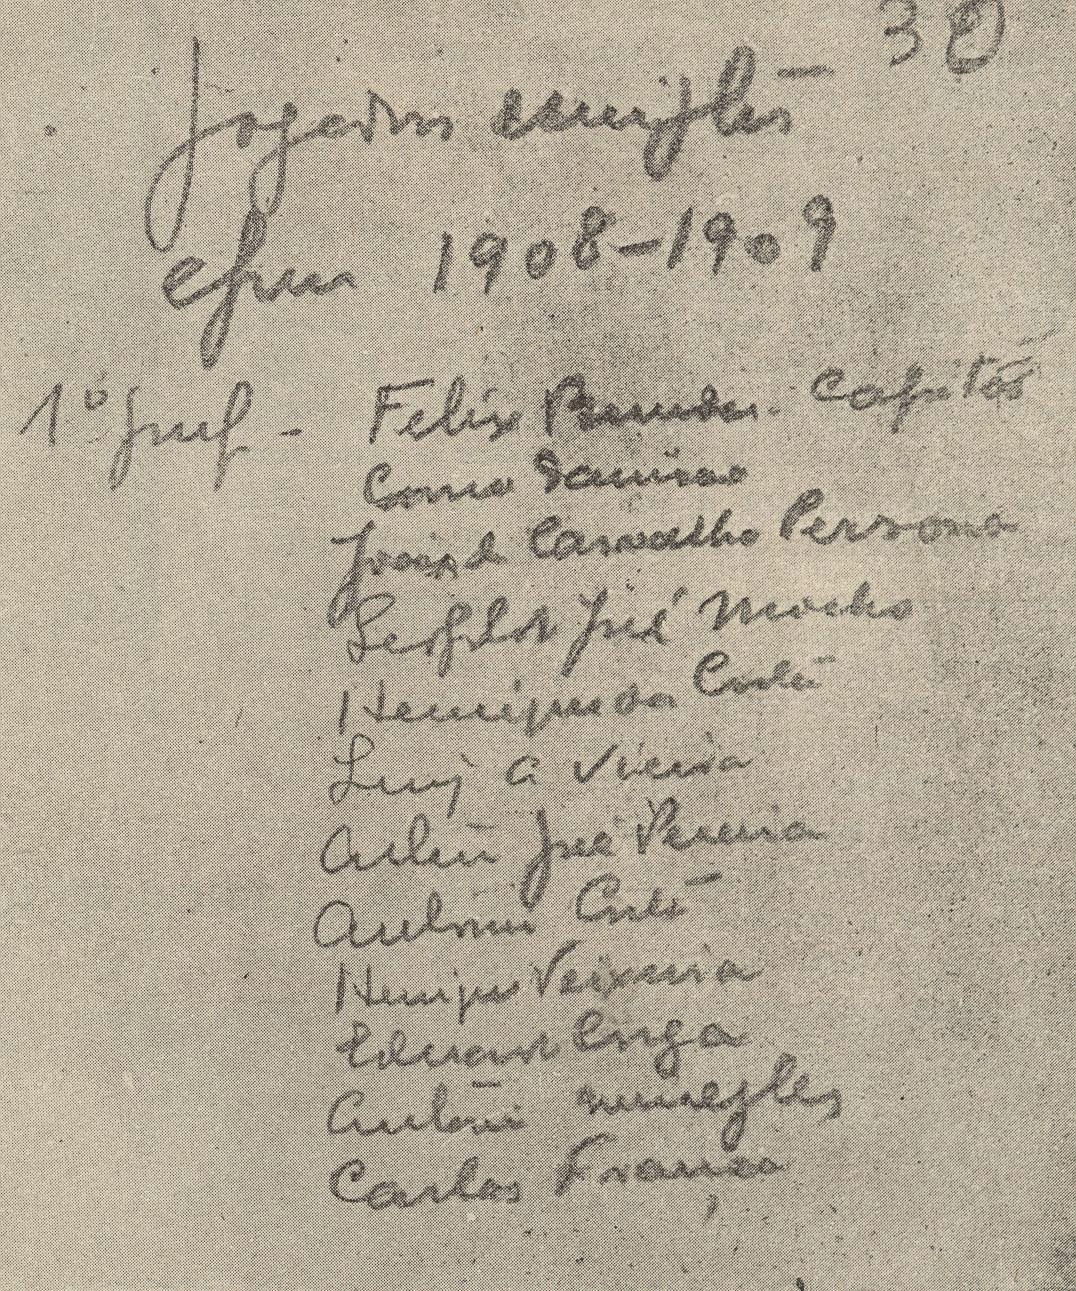 30
Jogadores
epoca 1908-1909
1º grup - Felix Bermudes - Capitão
Cosme Damião
João de Carvalho Persona
Leopoldo José Mocho
Henrique da Costa
Luiz A Vieira
Artur José Pereira
António Costa
Henrique Teixeira
Eduardo Corga
António Meyrelles
Carlos França